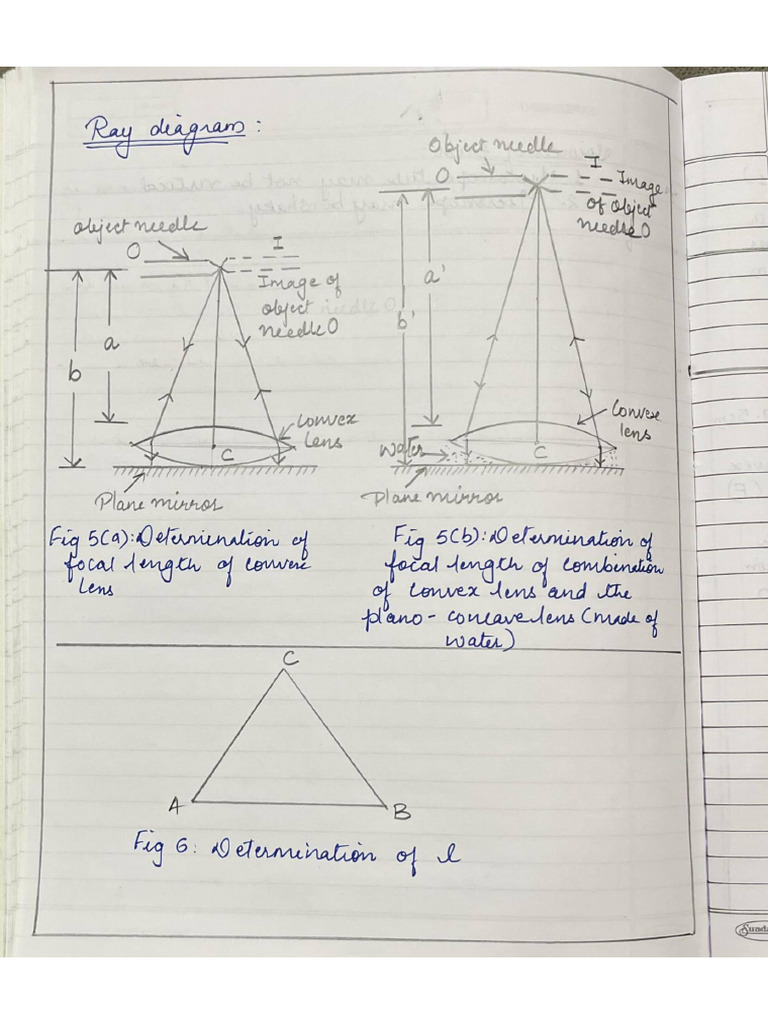 Ray diagram:
object needle
O
I
Image of
object
needle O
a
b
convex
lens
C
Plane mirror
Fig 5(a): Determination of
focal length of convex
lens
Object needle
O
I
Image
of object
needle O
a'
b'
convex
lens
water
C
Plane mirror
Fig 5(b): Determination of
focal length of combination
of convex lens and the
plano-concave lens (made of
water)
C
A
B
Fig 6: Determination of l